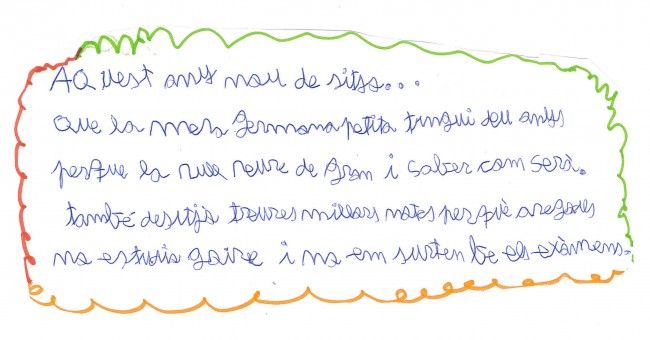 AQuest any nou de sitjo...
Que la meva germana petita tingui deu anys
perque la vull veure de gran i saber com serà.
també desitjo treures millors notes perquè a vegades
no estudio gaire i no em surten be els exàmens.